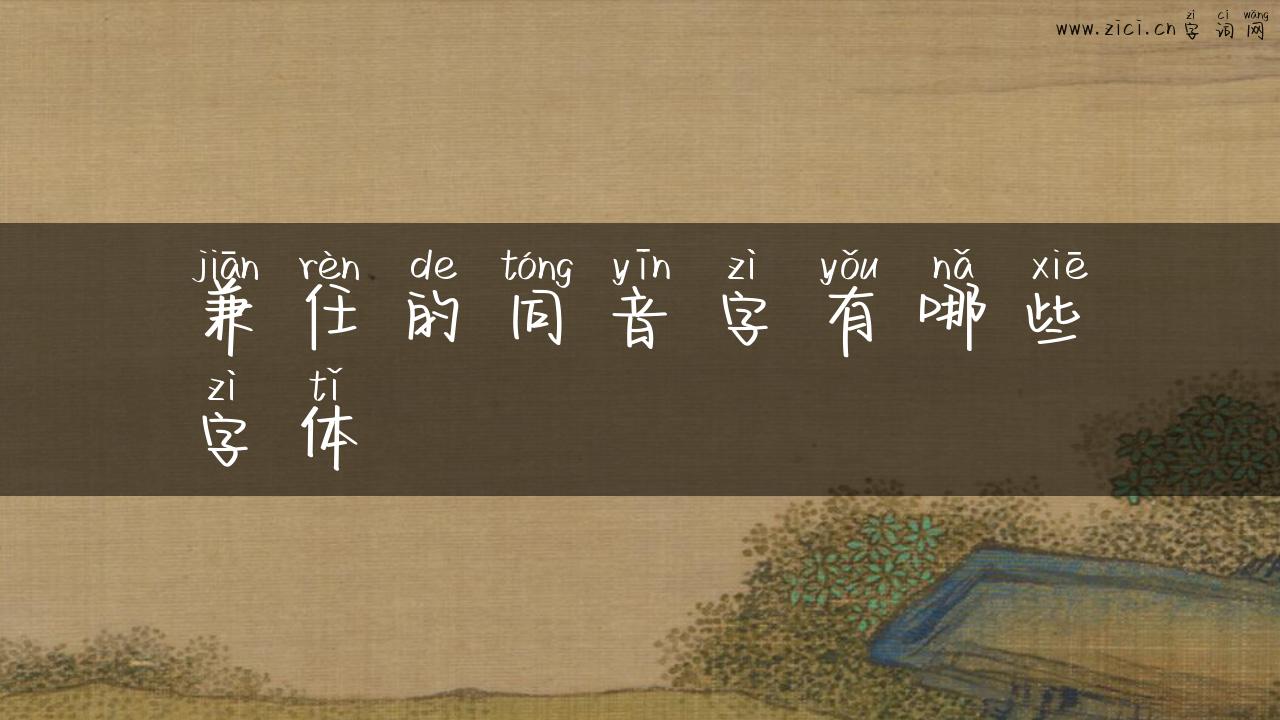 zì cí wǎng
www.zici.cn 字 词 网
jiān rèn de tóng yīn zì yǒu nǎ xiē
兼 任 的 同 音 字 有 哪 些
zì tǐ
字 体